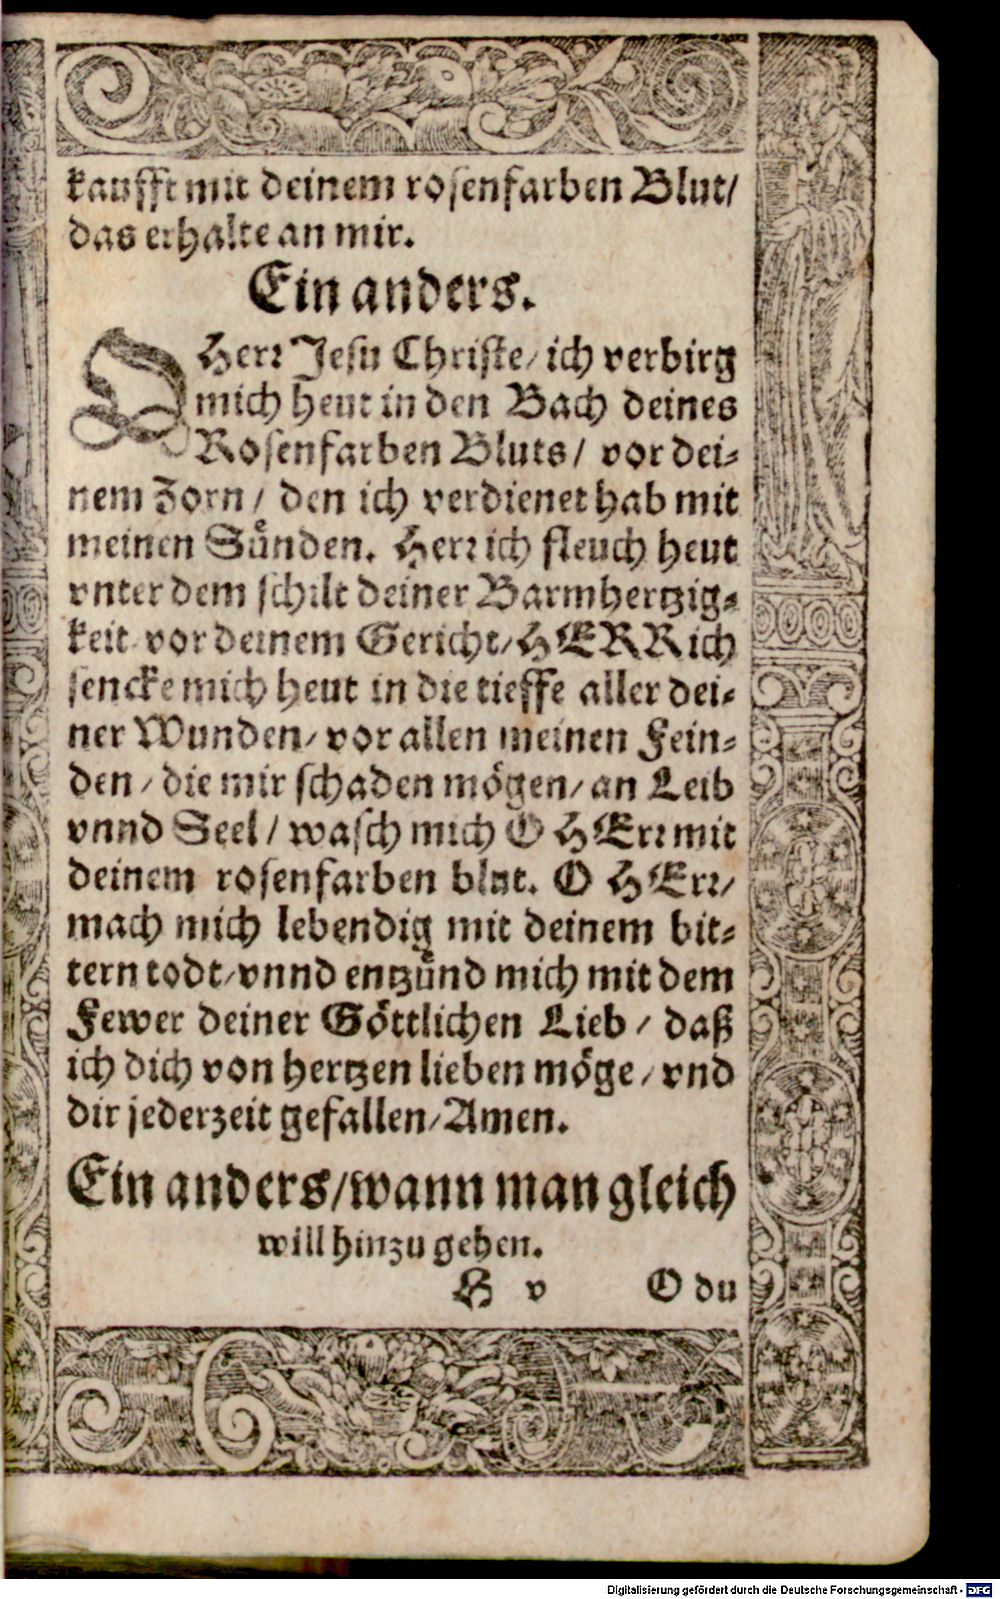 kaufft mit deinem rosenfarben Blut/
das erhalte an mir.
Ein anders.
O Herr Jesu Christe/ ich verbirg
mich heut in den Bach deines
Rosenfarben Bluts/ vor dei-
nem Zorn/ den ich verdienet hab mit
meinen Sůnden. Herr ich fleuch heut
vnter dem schilt deiner Barmhertzig-
keit vor deinem Gericht/ HERR ich
sencke mich heut in die tieffe aller dei-
ner Wunden/ vor allen meinen Fein-
den/ die mir schaden mögen/ an Leib
vnnd Seel/ wasch mich O HErr mit
deinem rosenfarben blut. O HErr/
mach mich lebendig mit deinem bit-
tern todt/ vnnd entzůnd mich mit dem
Fewer deiner Göttlichen Lieb/ daß
ich dich von hertzen lieben möge/ vnd
dir jederzeit gefallen/ Amen.
Ein anders/ wann man gleich
will hinzu gehen.
H v O du
Digitalisierung gefördert durch die Deutsche Forschungsgemeinschaft - DFG